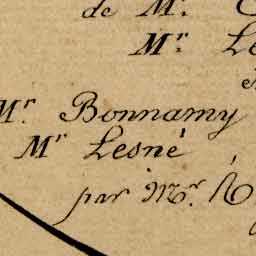 de Mr.
Mr. Le
Mr. Bonnamy
Mr Lesné
par Mr. R